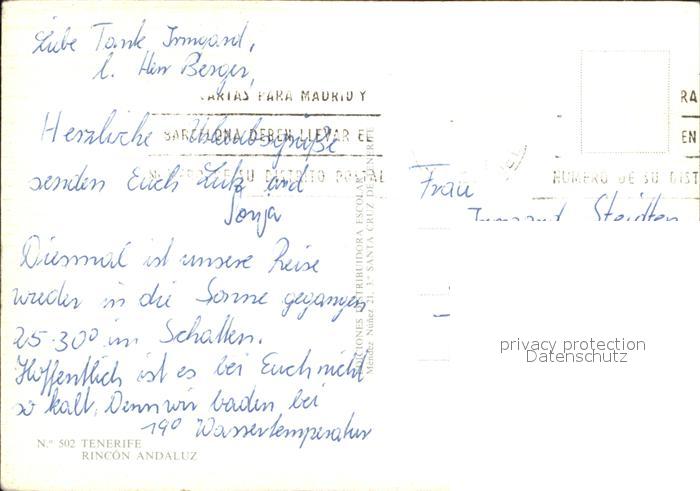 Liebe Tante Irmgard,
l. Herr Berger,
CARTAS PARA MADRID Y
BARCELONA DEBEN LLEVAR EL
NUMERO DE SU DISTRITO POSTAL
Herzliche Urlaubsgrüße
senden Euch Lutz und
Sonja
Diesmal ist unsere Reise
wieder in die Sonne gegangen
25-30° im Schatten.
Hoffentlich ist es bei Euch nicht
so kalt. Denn wir baden bei
19° Wassertemperatur
N.º 502 TENERIFE
RINCÓN ANDALUZ
EDICIONES DISTRIBUIDORA ESCOLAR
Méndez Núñez 21, 3.º SANTA CRUZ DE TENERIFE
RA
EN
NUMERO DE SU DIST
Frau
Irmgard
privacy protection
Datenschutz